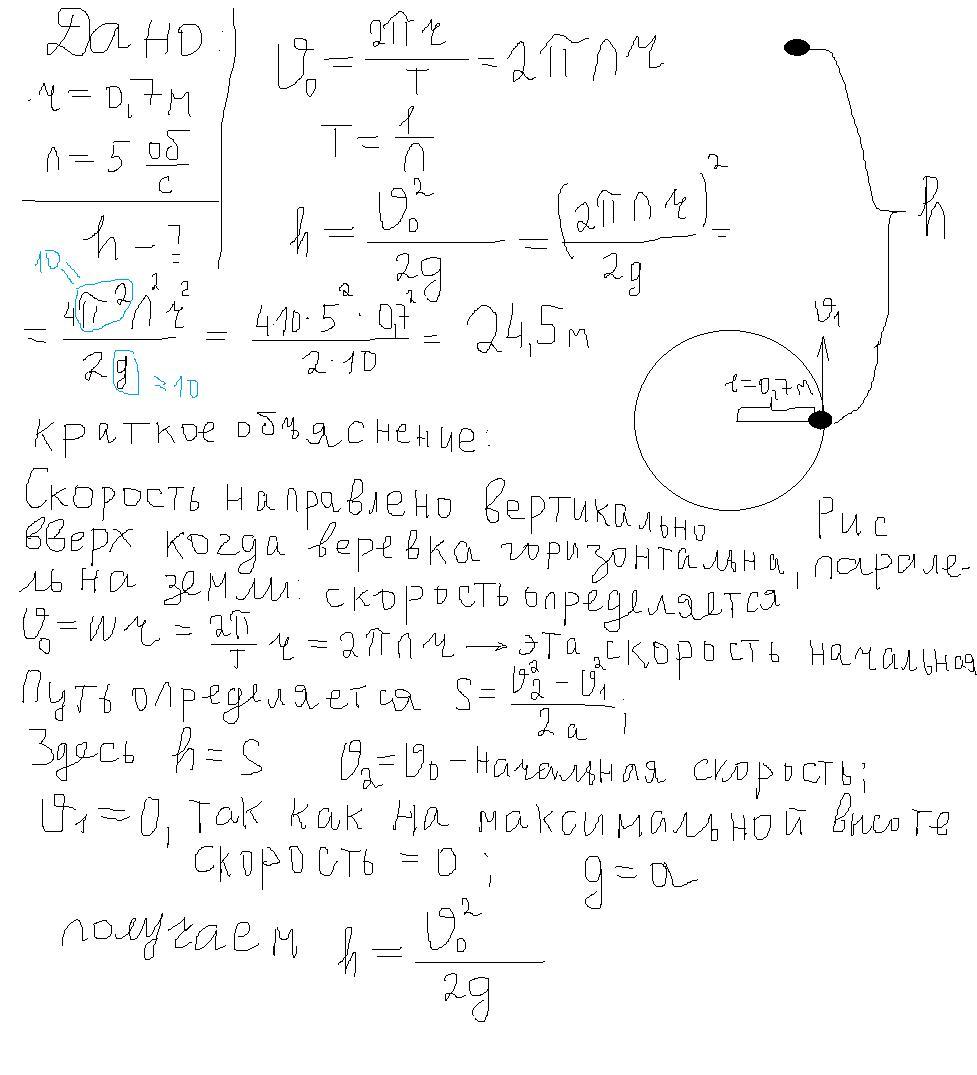 Дано:
r = 0,7 м
n = 5 об/с
h - ?
υ₀ = 2πr/T = 2πnr
T = 1/n
h = υ₀²/2g = (2πnr)²/2g =
10
= 4π²n²r²/2g = 4·10·5²·0,7²/2·10 = 24,5 м
≈10
h
υ₁
r=0,7м
Рис
краткое объяснение:
Скорость направлено вертикально
вверх когда веревка горизонтальна, парале-
льна земли: скорость определяется
υ₀ = wr = 2π/T r = 2πnr → эта скорость начальная
Путь определяется S = υ₂² - υ₁²/2a ;
Здесь h = S υ₂ = υ₀ - начальная скорость;
υ₁ = 0, так как на максимальной высоте
скорость = 0 ; g = a
получаем h = υ₀²/2g